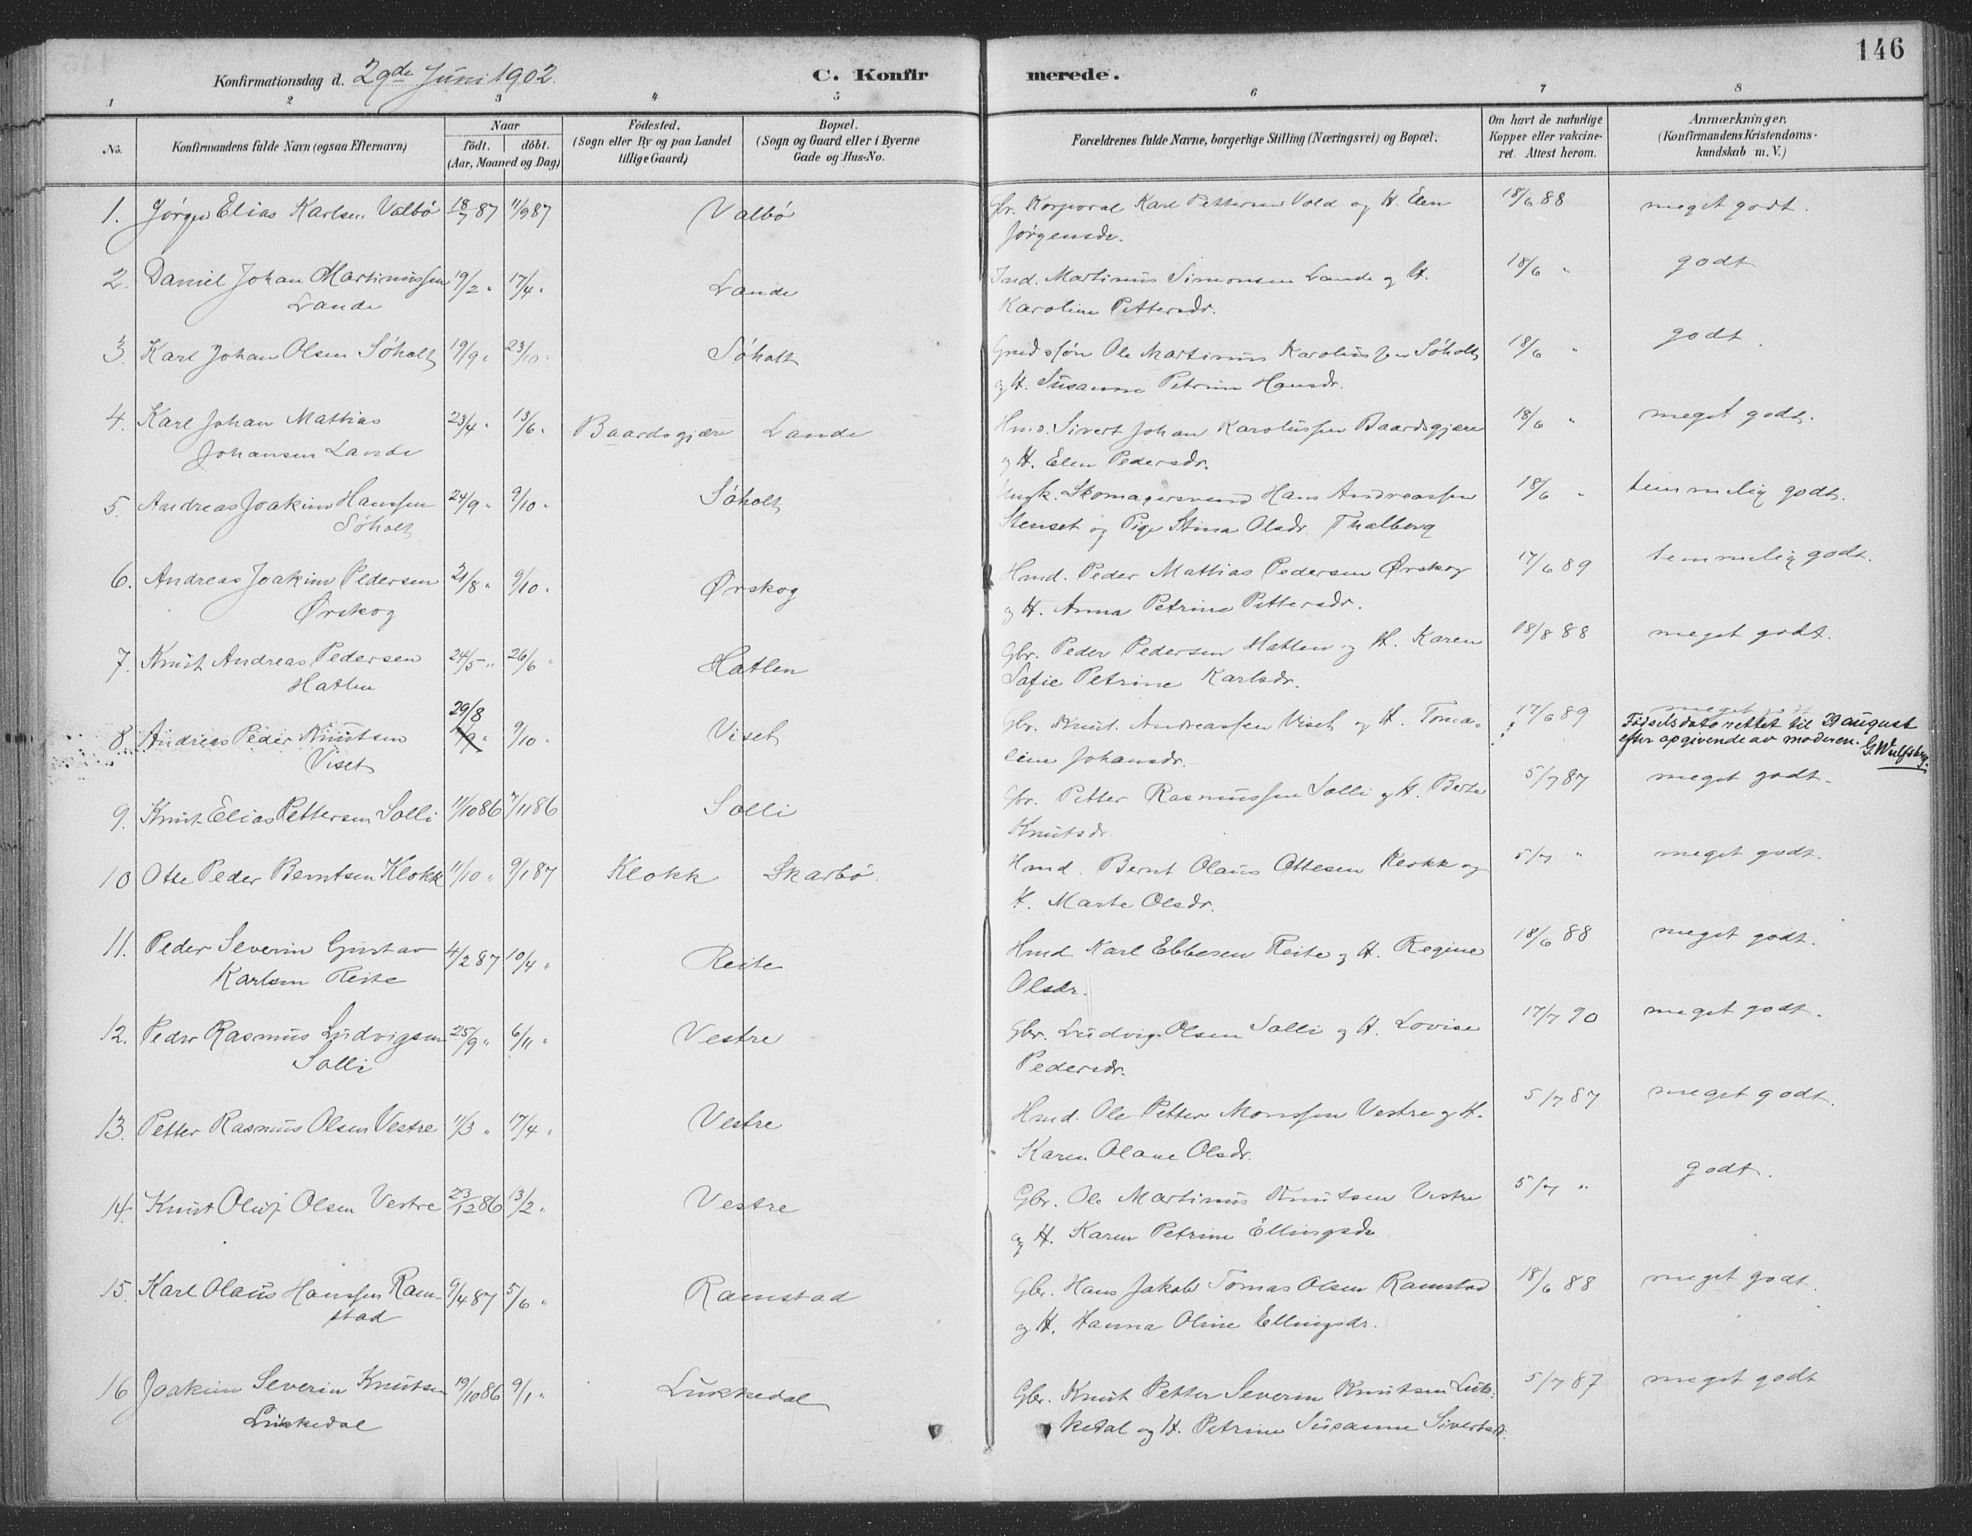 146
Konfirmationsdag d. 29de Juni 1902. C. Konfirmerede.
1 2 3 4 5 6 7 8
No. Konfirmandens fulde Navn (ogsaa Efternavn) Naar født. døbt. (Aar, Maaned og Dag) Fødested. (Sogn eller By og paa Landet tillige Gaard) Bopæl. (Sogn og Gaard eller i Byerne Gade og Hus-No. Forældrenes fulde Navne, borgerlige Stilling (Næringsvei) og Bopæl. Om havt de naturlige Kopper eller vakcineret. Attest herom. Anmærkninger. (Konfirmandens Kristendomskundskab m. V.)
1. Jørgen Elias Karlsen Valbø 18/7 87 11/9 87 Valbø Gbr. Korporal Karl Pettersen Vold og H. Elen 18/6 88 meget godt.
Jørgensdr.
2. Daniel Johan Martinussen 19/2 " 17/4 " Lande Ind. Martinus Simonsen Lande og H. 18/6 " godt
Lande Karoline Pettersdr.
3. Karl Johan Olsen Søholt 19/9 " 23/10 " Søholt Grdssøn Ole Martinus Karolussen Søholt 18/6 " godt.
og H. Susanne Petrine Hansdr.
4. Karl Johan Mattias 23/4 " 13/6 " Baardsgjære Lande Hmd. Sivert Johan Karolussen Baardsgjære 18/6 " meget godt.
Johansen Lande og H. Elen Pedersdr.
5. Andreas Joakim Hanssen 24/9 " 9/10 " Søholt Ungk. Skomagersvend Hans Andreassen 18/6 " temmelig godt.
Søholt Stenset og Pige Stina Olsdr. Thalberg
6. Andreas Joakim Pedersen 31/8 " 9/10 " Ørskog Hmd. Peder Mattias Pedersen Ørskog 17/6 89 temmelig godt.
Ørskog og H. Anna Petrine Pettersdr.
7. Knut Andreas Pedersen 24/5 " 26/6 " Hatlen Gbr. Peder Pedersen Hatlen og H. Karen 18/8 88 meget godt.
Hatlen Sofie Petrine Karlsdr.
29/8
8. Andreas Peder Knutsen 9/10 " Viset Gbr. Knut Andreassen Viset og H. Toma- 17/6 89 meget godt
Viset line Johansdr. Fødselsdato rettet til 29 august
efter opgivende av moderen. G. Wulfsberg.
9. Knut Elias Pettersen Solli 11/10 86 7/11 86 Solli Gbr. Petter Rasmussen Solli og H. Berte 5/7 87 meget godt.
Knutsdr.
10 Otte Peder Berntsen Klokk 11/10 " 9/1 87 Klokk Skarbø. Hmd. Bernt Olaus Ottesen Klokk og 5/7 " meget godt.
H. Marte Olsdr.
11. Peder Severin Gustav 4/2 87 10/4 " Reite Hmd. Karl Ebbesen Reite og H. Regine 18/6 88 meget godt.
Karlsen Reite Olsdr.
12. Peder Rasmus Ludvigsen 25/9 " 6/11 " Vestre Gbr. Ludvig Olsen Solli og H. Lovise 17/7 90 meget godt.
Solli Pedersdr.
13. Petter Rasmus Olsen Vestre 11/3 " 17/4 " Vestre Hmd. Ole Petter Monssen Vestre og H. 5/7 87 meget godt.
Karen Olane Olsdr.
14. Knut Oluf Olsen Vestre 23/12 86 13/2 " Vestre Gbr. Ole Martinus Knutsen Vestre 5/7 " godt.
og H. Karen Petrine Ellingsdr
15. Karl Olaus Hanssen Ram- 9/4 87 5/6 " Ramstad Gbr. Hans Jakob Tomas Olsen Ramstad 18/6 88 meget godt.
stad og H. Hanna Oline Ellingsdr.
16 Joakim Severin Knutsen 19/10 86 9/1 " Lukkedal Gbr. Knut Petter Severin Knutsen Luk- 5/7 87 meget godt
Lukkedal kedal og H. Petrine Susanne Sivertsdr.